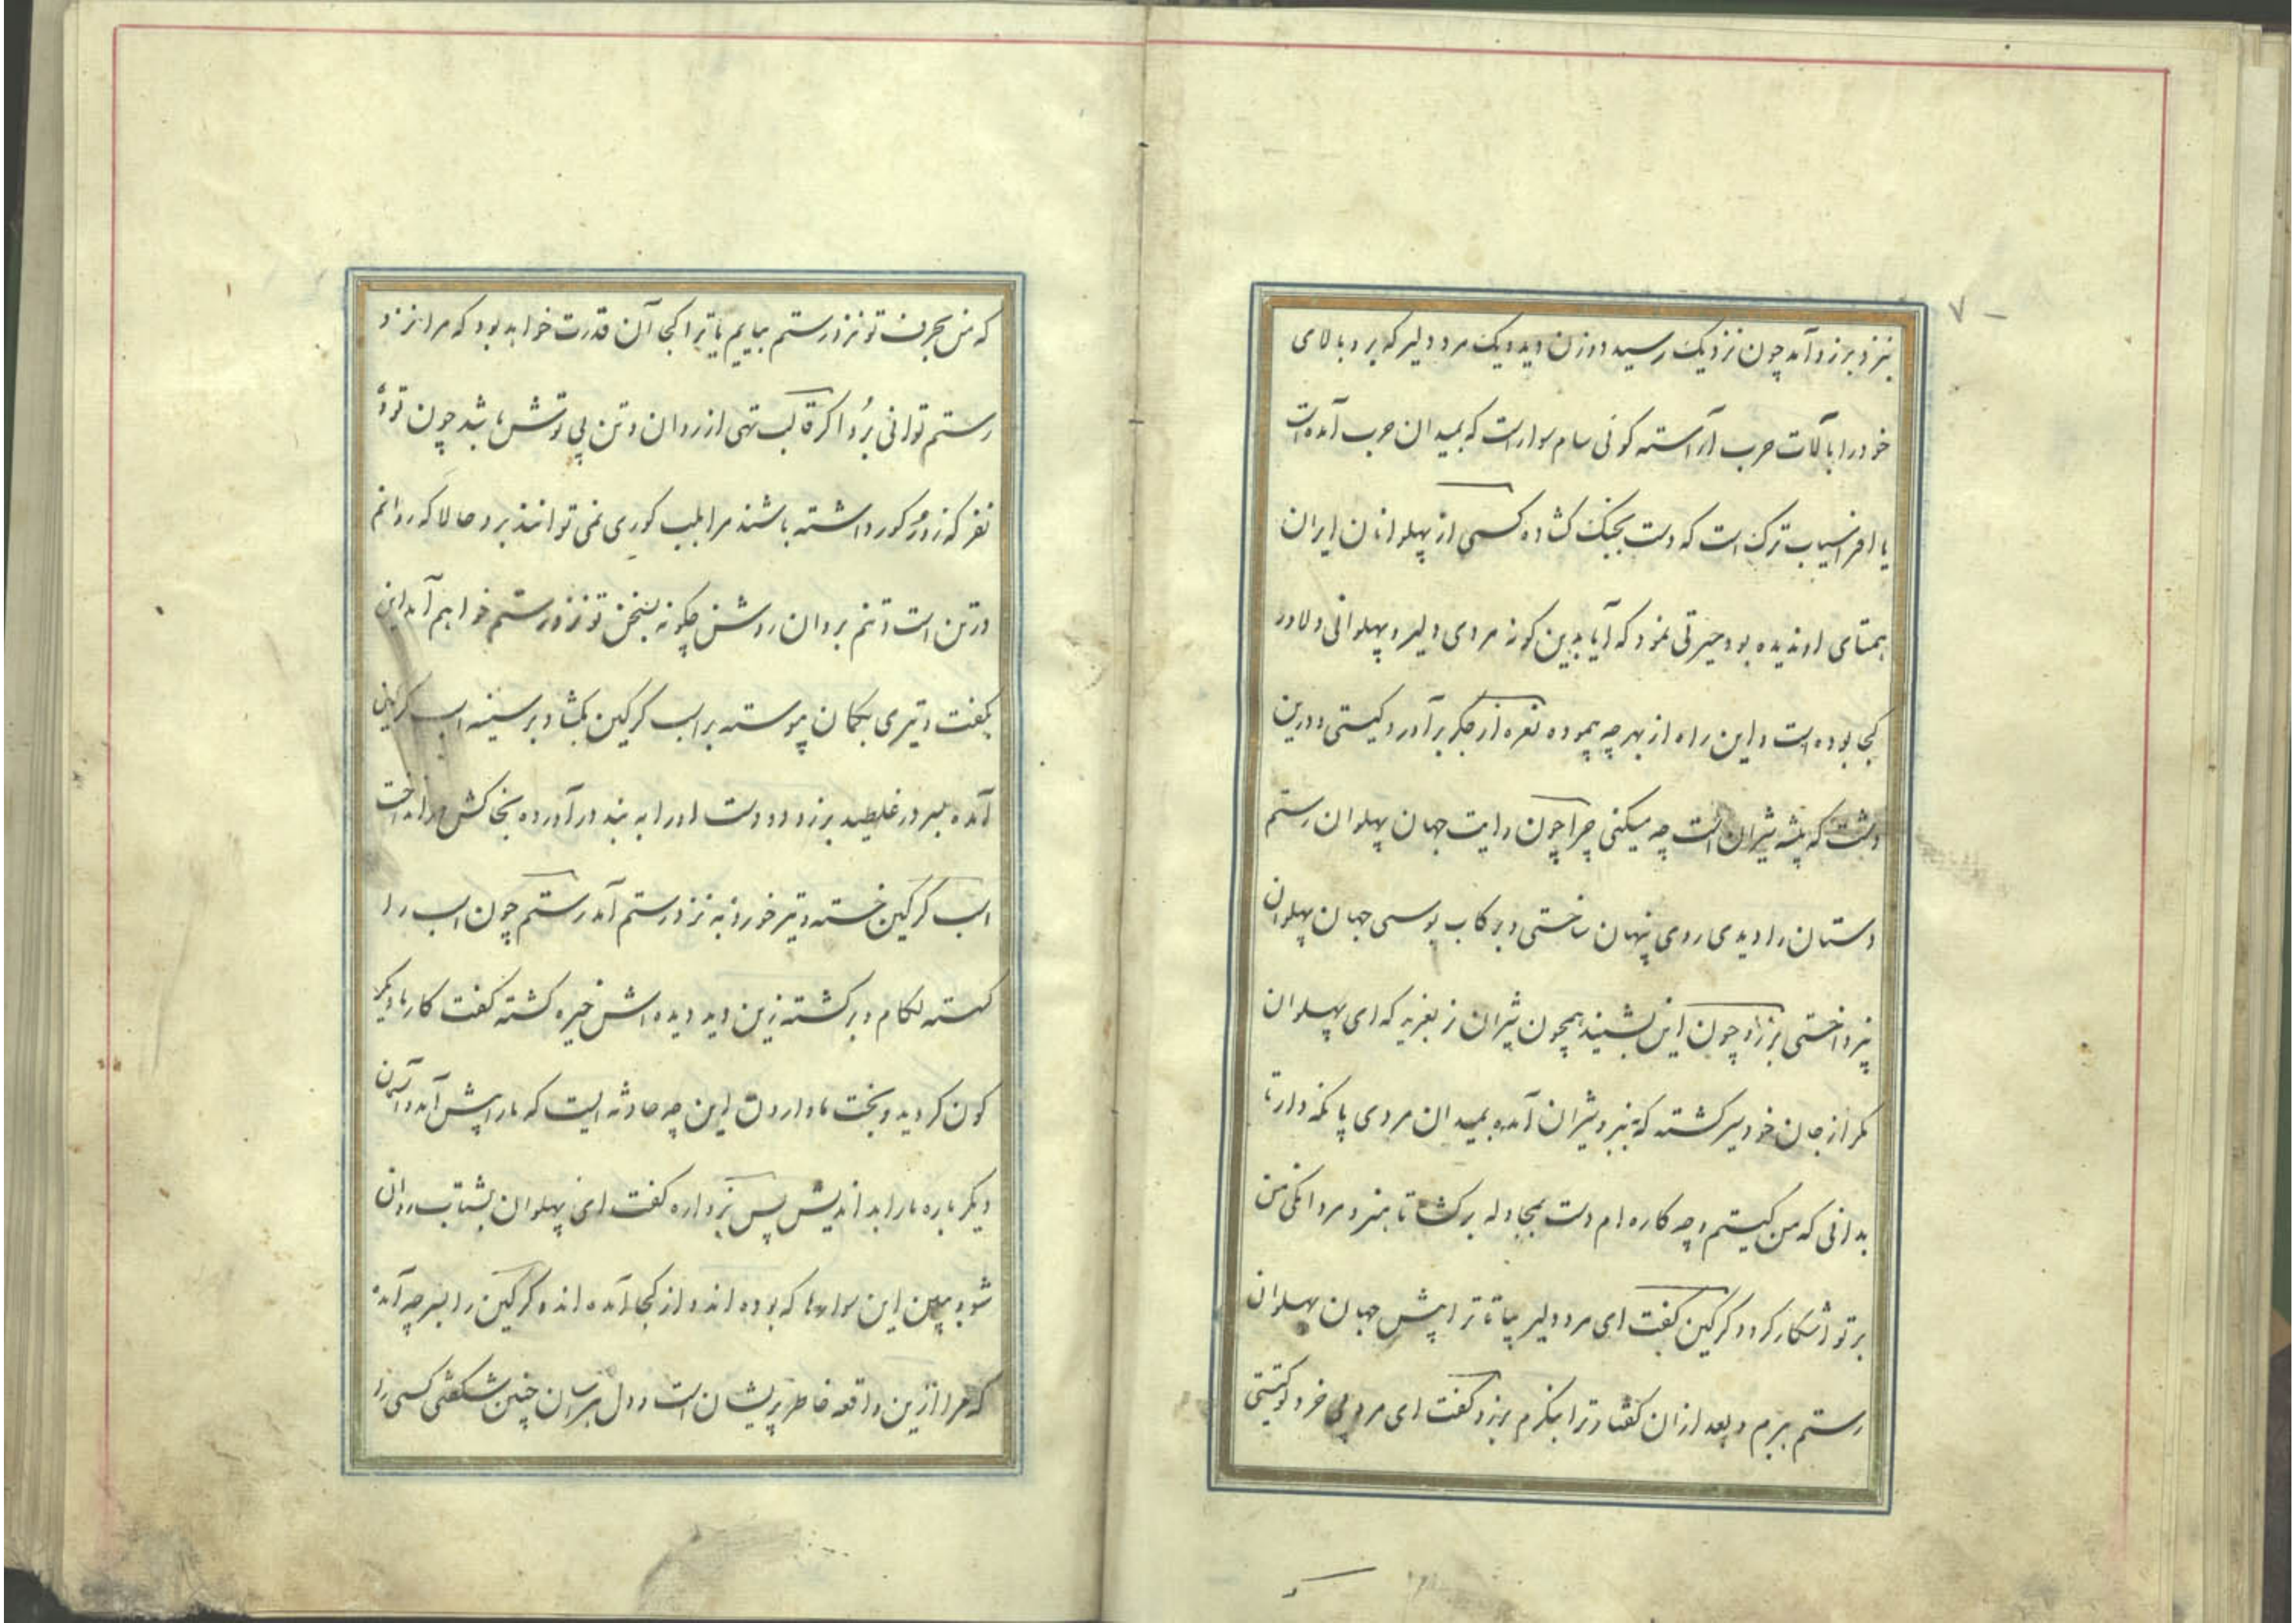 ۷
بنزد برزو آمد چون نزدیک رسید دو زن دید و یک مرد دلیر که بر و بالای
خود را بآلات حرب آراسته کوئی سام سوار است که بمیدان حرب آمده است
یا افراسیاب ترک است که دست بجنک کشاده کسی از پهلوانان ایران
همتای او ندیده بود حیرتی نمود که آیا بدین کونه مردی دلیر و پهلوانی دلاور
کجا بوده است و این راه از بهر چه پیموده نعره از جکر برآورد کیستی و درین
دشت که بیشه شیران است چه میکنی چرا چون رایت جهان پهلوان رستم
دستان را دیدی روی پنهان ساختی و برکاب بوسی جهان پهلوان
نپرداختی برزو چون این بشنید همچون شیران نر بغرید که ای پهلوان
مکر از جان خود سیر کشته که بنبرد شیران آمده بمیدان مردی پا نکه دار تا
بدانی که من کیستم و چه کاره ام دست بمجادله برکشا تا هنر و مردانکی من
بر تو آشکار کردد کرکین بکفت ای مرد دلیر بیا تا ترا پیش جهان پهلوان
رستم برم و بعد از ان کفتار ترا بنکرم برزو کفت ای مرد بی خرد تو کیستی
که من بحرف تو نزد رستم بیایم یا ترا کجا آن قدرت خواهد بود که مرا نزد
رستم توانی برد اکر قالب تهی از روان و تن بی توش باشد چون تو ده
نفر که زور کور داشته باشند مرا بلب کوری نمی توانند برد حالا که روانم
در تن است و تنم بروان روشن چکونه بسخن تو نزد رستم خواهم آمد این
بکفت و تیری بکمان پیوسته بر اسب کرکین بکشاد بر سینه اسب کرکین
آمده بسر در غلطید برزو دو دست او را به بند درآورده بخاکش در انداخت
اسب کرکین خسته و تیر خورده به نزد رستم آمد رستم چون اسب را
کسسته لکام و برکشته زین دید دیده اش خیره کشته کفت کار ما دیکر
کون کردید و بخت ما وارون این چه حادثه ایست که ما را پیش آمد و آسمان
دیکر باره ما را بد اندیش پس بزواره کفت ای پهلوان بشتاب روان
شو و ببین این سوارها که بوده اند و از کجا آمده اند و کرکین را بسر چه آمده
که مرا ازین واقعه خاطر پریشان است و دل هراسان چنین شکفتی کسی را